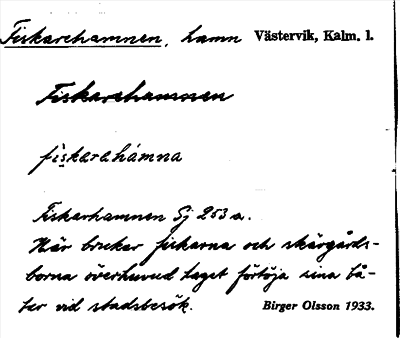 Fiskarehamnen, hamn Västervik, Kalm. l.
Fiskarehamnen
fiskarahàmna
Fiskarhamnen Sj 253 a.
Här brukar fiskarna och skärgårds-
borna överhuvud taget förtöja sina bå-
tar vid stadsbesök. Birger Olsson 1933.